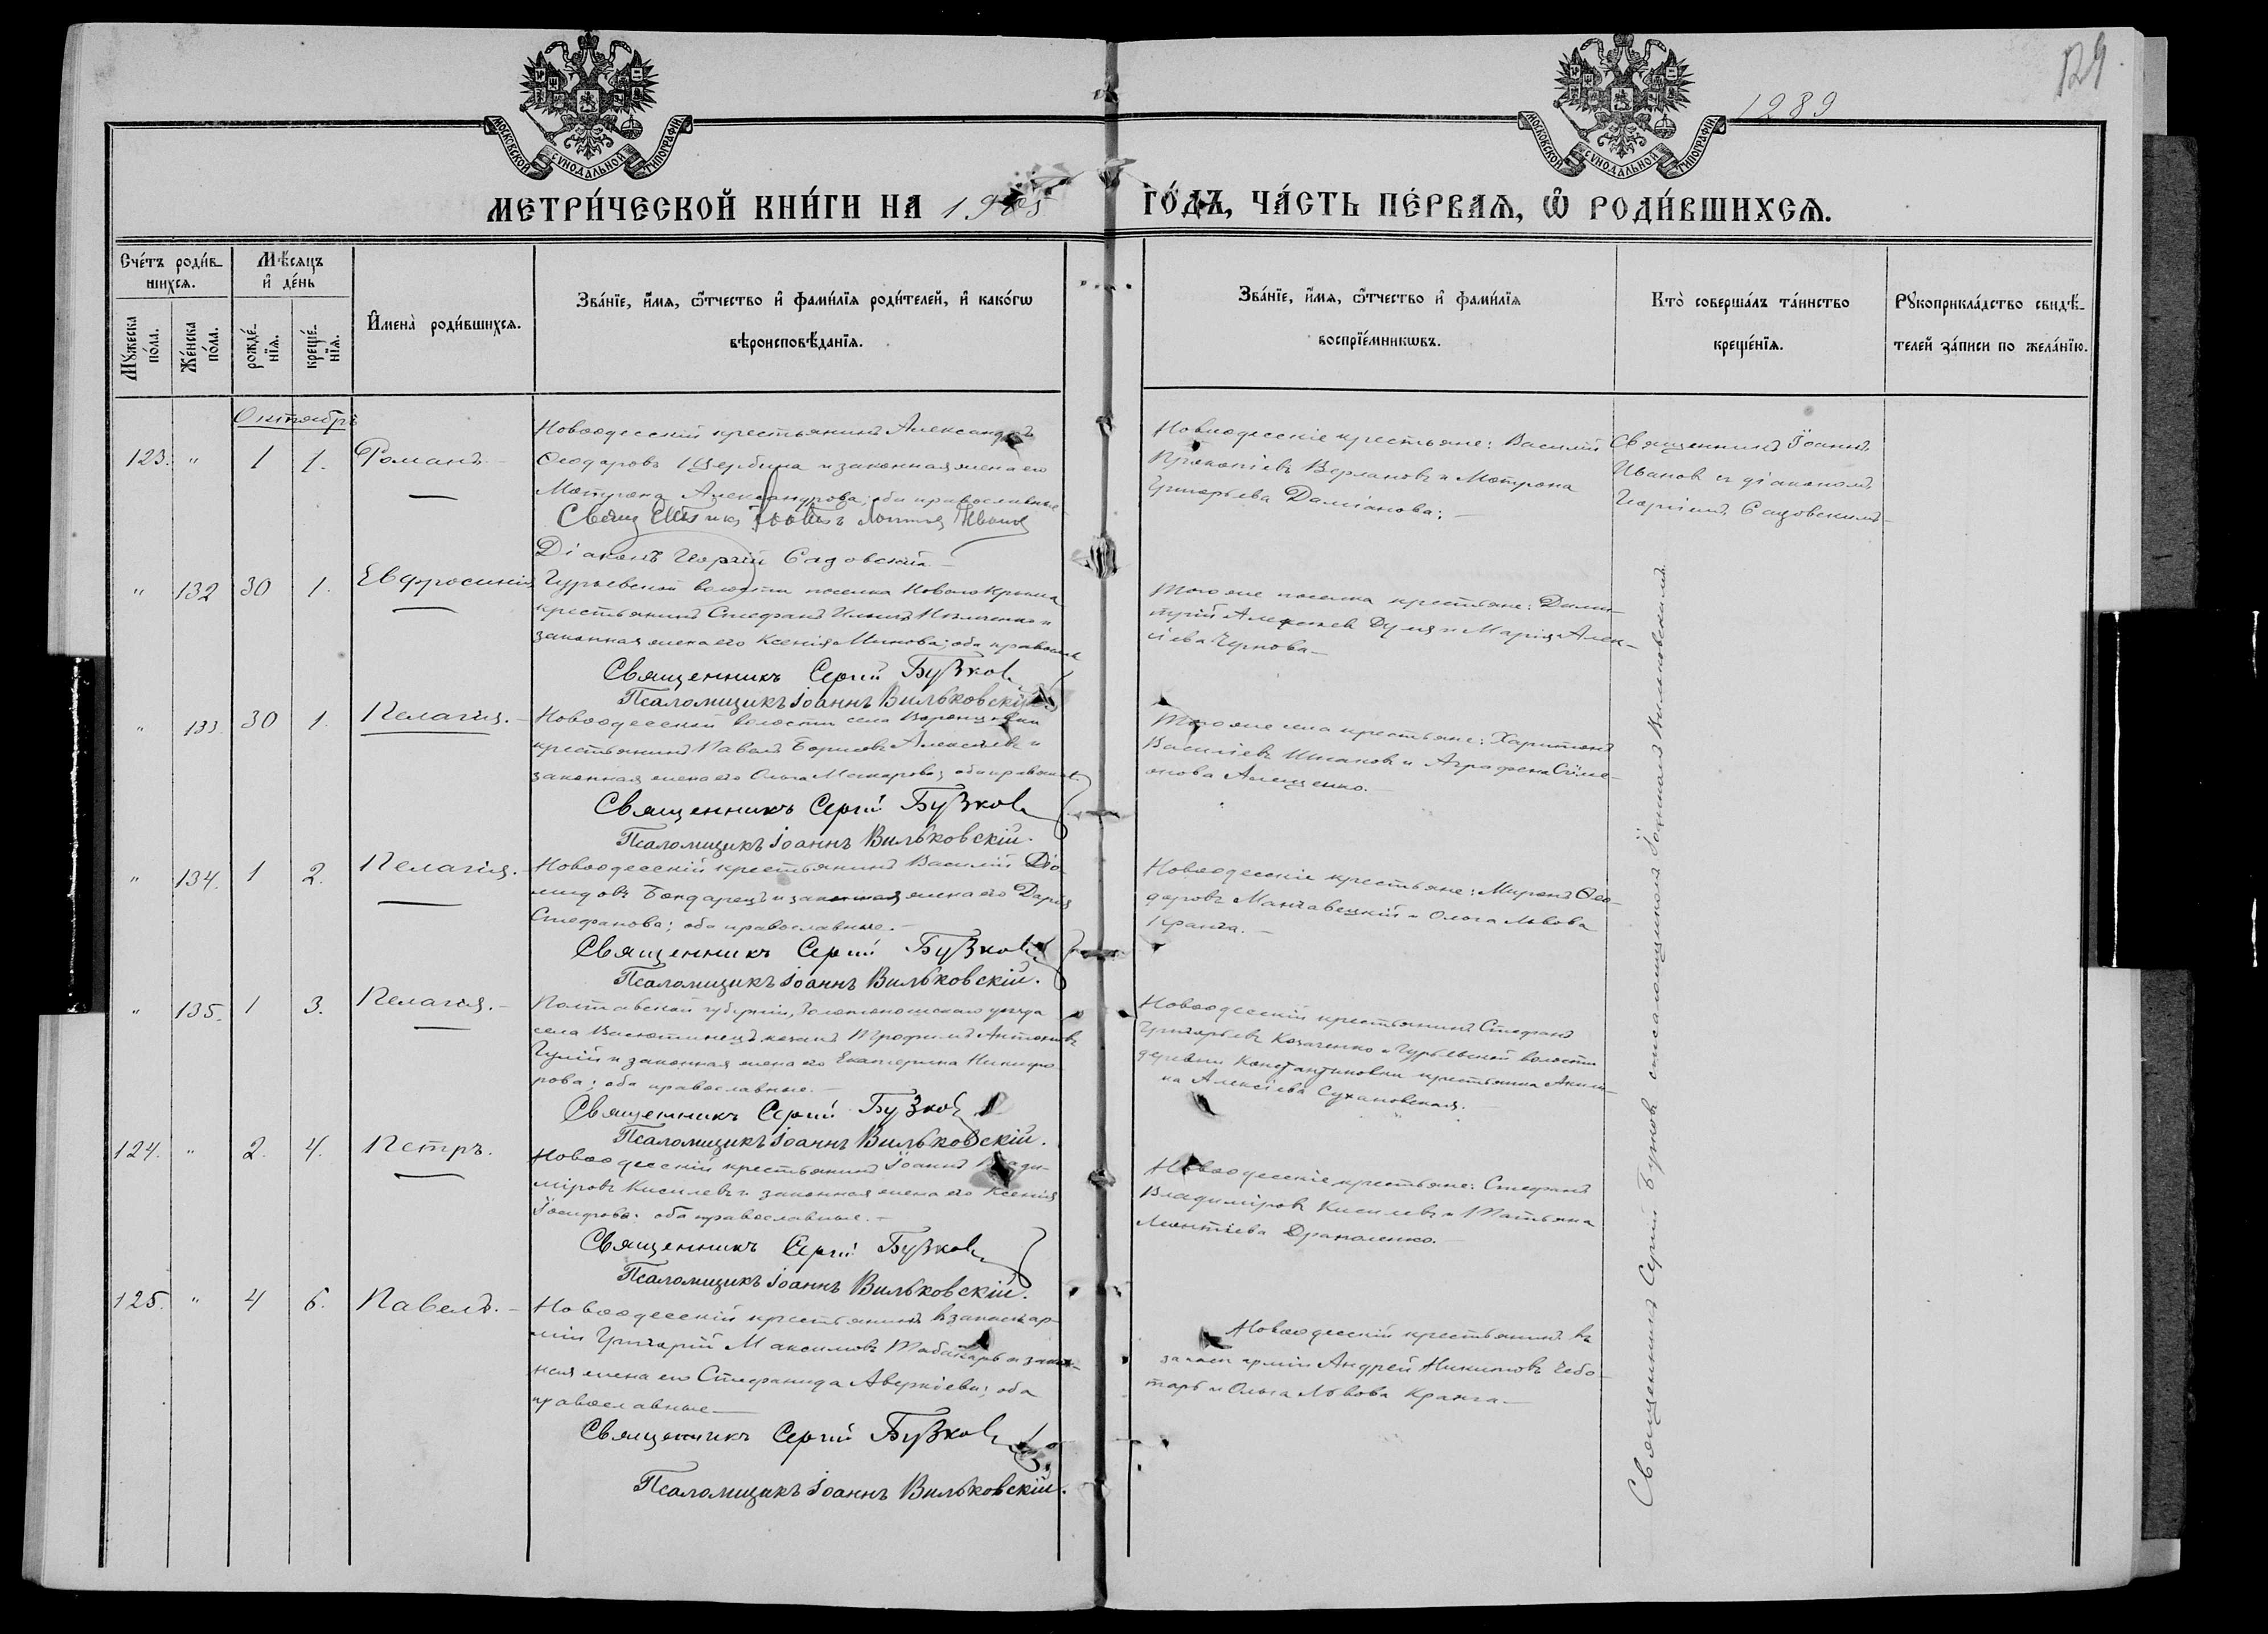 129
1289
МОСКОВСКОЙ СѴНОДАЛЬНОЙ ТИПОГРАФІИ
МОСКОВСКОЙ СѴНОДАЛЬНОЙ ТИПОГРАФІИ
МЕТРИ́ЧЕСКОЙ КНИ́ГИ НА 1905 ГО́ДЪ, ЧА́СТЬ ПЕ́РВАѦ, Ѡ҃ РОДИ́ВШИХСѦ.
Сче́тъ роди́в-
шихсѧ.
Мꙋ́жеска по́ла.
Же́нска по́ла.
Мѣ́сѧцъ
и҆ де́нь
рожде́-
нїѧ.
креще́-
нїѧ.
И҆мена̀ роди́вшихсѧ.
Зва́нїе, и҆́мѧ, ѻ҆́тчество и҆ фами́лїѧ роди́телей, и҆ како́гѡ
вѣроисповѣ́данїѧ.
Зва́нїе, и҆́мѧ, ѻ҆́тчество и҆ фами́лїѧ
воспрїе́мникѡвъ.
Кто̀ соверша́лъ та́инство
креще́нїѧ.
Рꙋкоприкла́дство свидѣ́-
телей за́писи по жела́нїю.
Октябрь
123. " 1 1. Романъ.
Новоодесскій крестьянинъ Александръ
Ѳеодоровъ Щербина и законная жена его
Матрона Александрова; оба православные
Діаконъ Георгій Садовскій.
Новоодесскіе крестьяне: Василій
Прокопіевъ Верлановъ и Матрона
Григорьева Даміанова;
Священникъ Іоаннъ
Ивановъ съ діакономъ
Георгіемъ Садовскимъ
" 132 30 1. Евфросинія
Гурьевской волости поселка Новаго Крыма
крестьянинъ Стефанъ
законная жена его Ксенія Минова; оба православ
Священникъ Сергій Бузковъ
Псаломщикъ Іоаннъ Вильковскій.
Того же поселка крестьяне: Дими-
трій Алексѣевъ и Марія Алек-
сіева Чернова
" 133. 30 1. Пелагія.
Новоодесской волости села Воронцовки
крестьянинъ Павелъ Борисовъ Алексѣевъ и
законная жена его Ольга Макарова; оба правосл.
Священникъ Сергій Бузковъ
Псаломщикъ Іоаннъ Вильковскій.
Того же села крестьяне: Харитонъ
Василіевъ и Аграфена Симе-
онова Алещенко.
" 134. 1 2. Пелагія.
Новоодесскій крестьянинъ Василій Діо-
мидовъ Бондарецъ и законная жена его Дарія
Стефанова; оба православные.
Священникъ Сергій Бузковъ
Псаломщикъ Іоаннъ Вильковскій.
Новоодесскіе крестьяне: Миронъ Ѳео-
доровъ Манчавецкій и Ольга Львова
Кранга.
" 135. 1 3. Пелагія.
Полтавской губерніи, Золотоношскаго уѣзда
села Васютинецъ козакъ Трофимъ Антоновъ
Гулій и законная жена его Екатерина Никифо-
рова; оба православные.
Священникъ Сергій Бузковъ
Псаломщикъ Іоаннъ Вильковскій.
Новоодесскій крестьянинъ Стефанъ
Григорьевъ Козаченко и Гурьевской волости
деревни Константиновки крестьянка Акили-
на Алексіева Сухановская.
124. " 2. 4. Петръ.
Новоодесскій крестьянинъ Іоаннъ Влади-
міровъ Киселевъ и законная жена его Ксенія
Іосифова; оба православные.
Священникъ Сергій Бузковъ
Псаломщикъ Іоаннъ Вильковскій.
Новоодесскіе крестьяне: Стефанъ
Владиміровъ Киселевъ и Татьяна
Леонтіева Драполенко.
125. " 4 6. Павелъ.
Новоодесскій крестьянинъ въ запасѣ ар-
міи Григорій Максимовъ Табакарь и закон-
ная жена его Стефанида Аверкіева; оба
православные
Священникъ Сергій Бузковъ
Псаломщикъ Іоаннъ Вильковскій.
Новоодесскій крестьянинъ въ
запасѣ арміи Андрей Никитовъ Чебо-
тарь и Ольга Львова Кранга
Священникъ Сергій Бузковъ съ псаломщикомъ Іоанномъ Вильковскимъ.